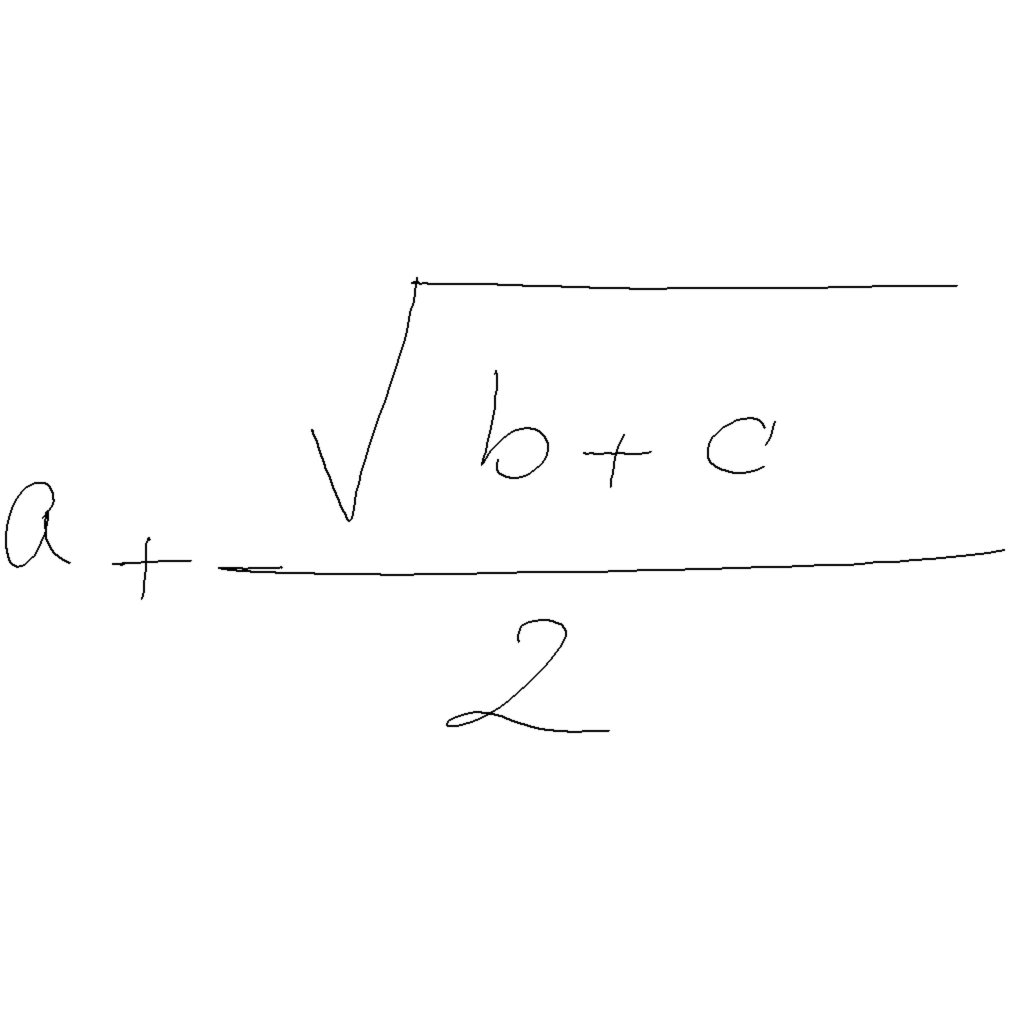 a + \frac{\sqrt{b+c}}{2}